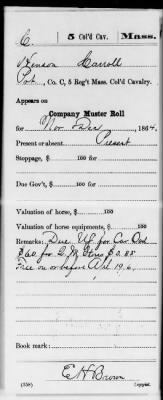 C. 5 Col'd Cav. Mass.
Henson Carroll
Pvt, Co. C, 5 Reg't Mass. Col'd Cavalry.
Appears on
Company Muster Roll
for Nov Dec, 1864.
Present or absent Present
Stoppage, $ 100 for
Due Gov't, $ 100 for
Valuation of horse, $ 100
Valuation of horse equipments, $ 100
Remarks: Due U.S. for Car Ord
$ .60 for
Free on or before Apl 19 6.
Book mark:
E H Brown
(358) Copyist.